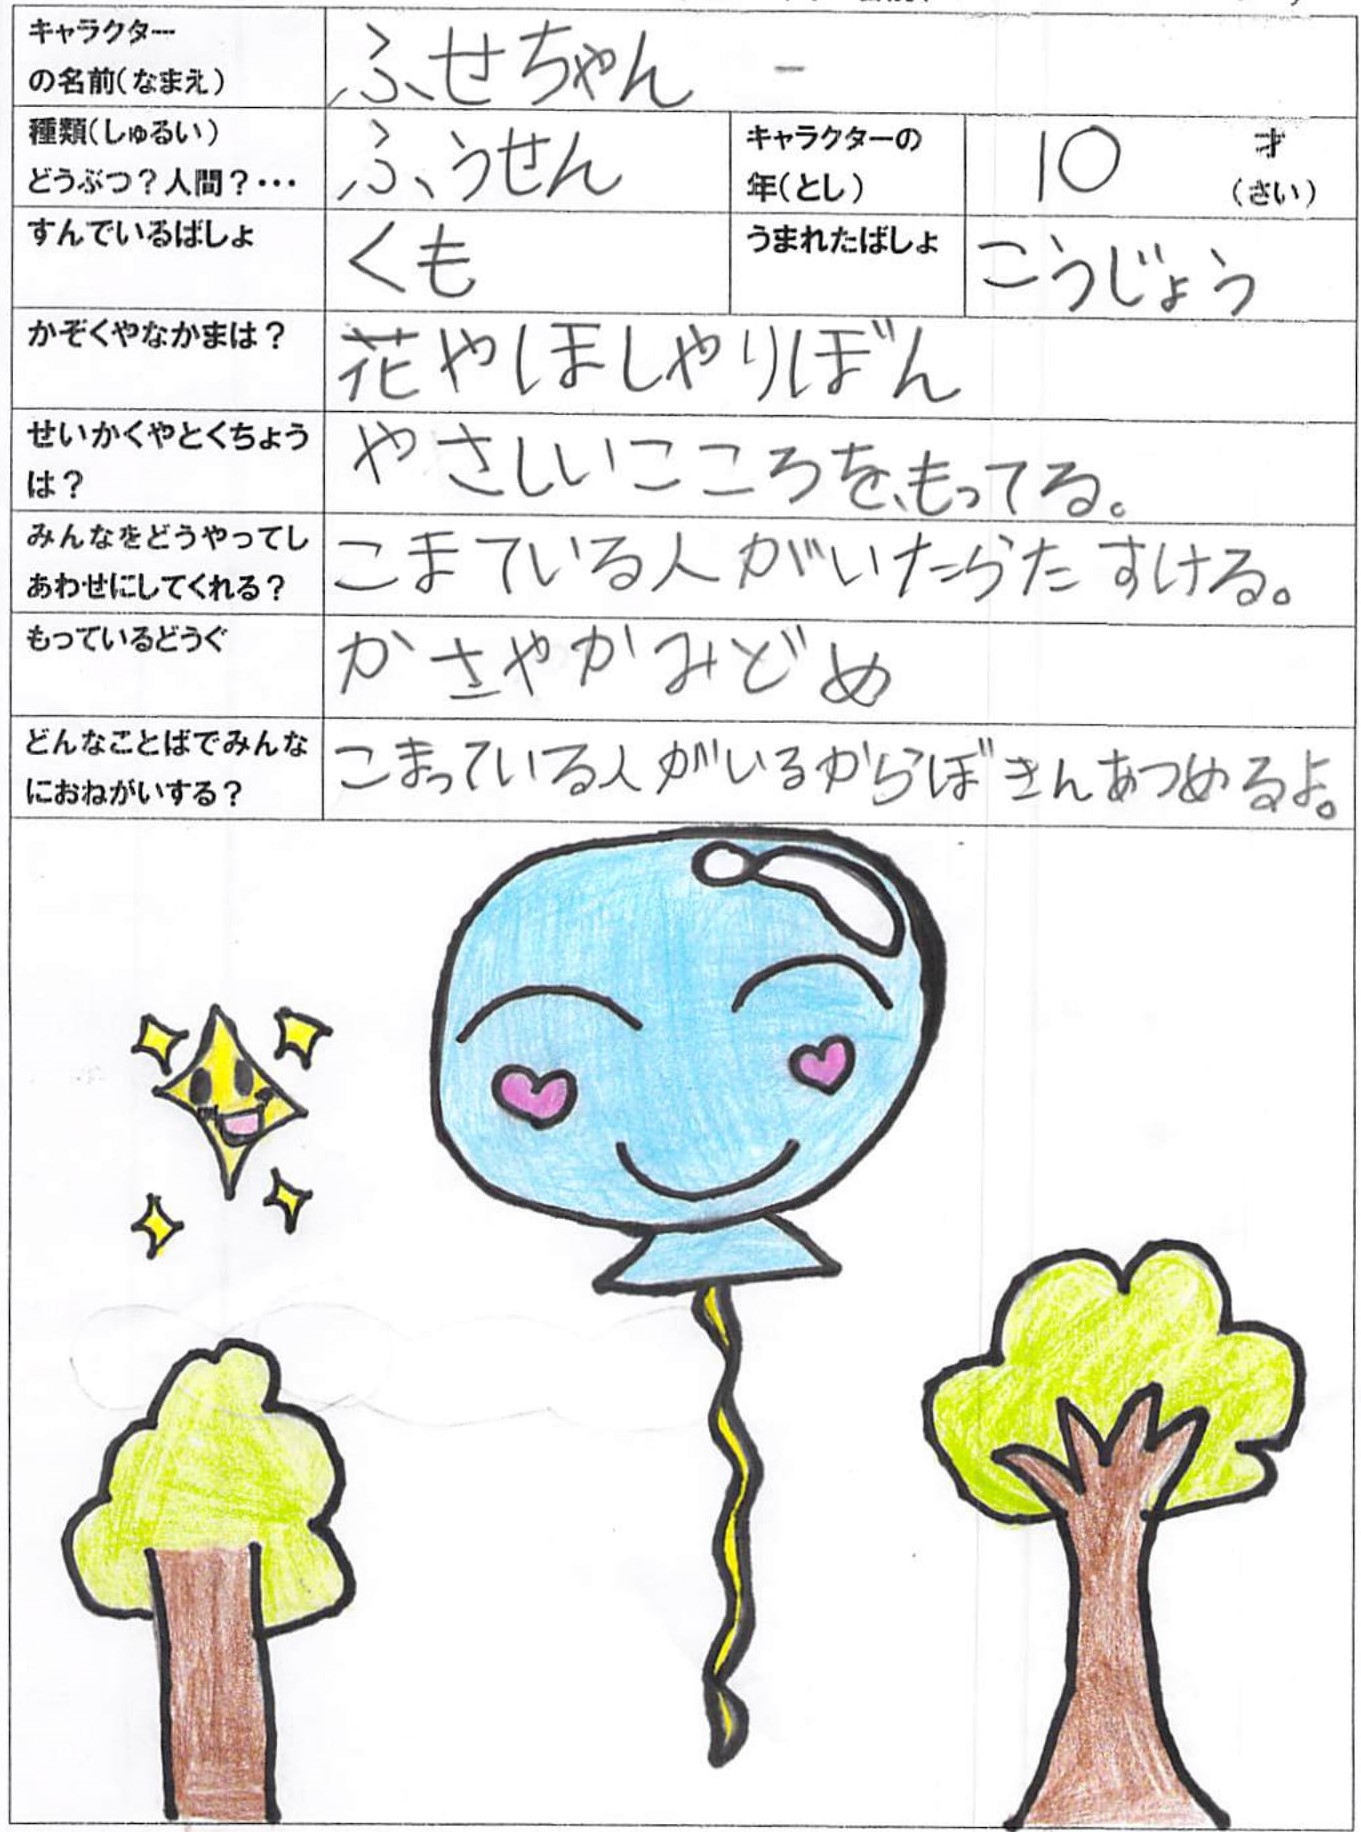 キャラクター
の名前(なまえ)
ふせちゃん
種類(しゅるい)
どうぶつ?人間?・・・
ふうせん
キャラクターの
年(とし)
10 才
(さい)
すんでいるばしょ
くも
うまれたばしょ
こうじょう
かぞくやなかまは?
花やほしやりぼん
せいかくやとくちょう
は?
やさしいこころを、もってる。
みんなをどうやってし
あわせにしてくれる?
こまている人がいたらたすける。
もっているどうぐ
かさやかみどめ
どんなことばでみんな
におねがいする?
こまっている人がいるからぼきんあつめるよ。